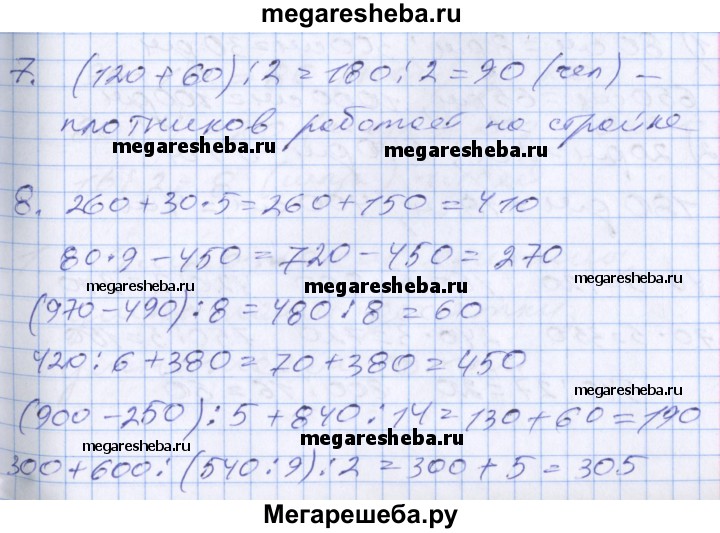 megaresheba.ru
7. (120 + 60) : 2 = 180 : 2 = 90 (чел) –
плотников работает на стройке
megaresheba.ru megaresheba.ru
8. 260 + 30 · 5 = 260 + 150 = 410
80 · 9 – 450 = 720 – 450 = 270
megaresheba.ru megaresheba.ru megaresheba.ru
(970 – 490) : 8 = 480 : 8 = 60
420 : 6 + 380 = 70 + 380 = 450
megaresheba.ru
(900 – 250) : 5 + 840 : 14 = 130 + 60 = 190
megaresheba.ru megaresheba.ru
300 + 600 : (540 : 9) : 2 = 300 + 5 = 305
Мегарешеба.ру